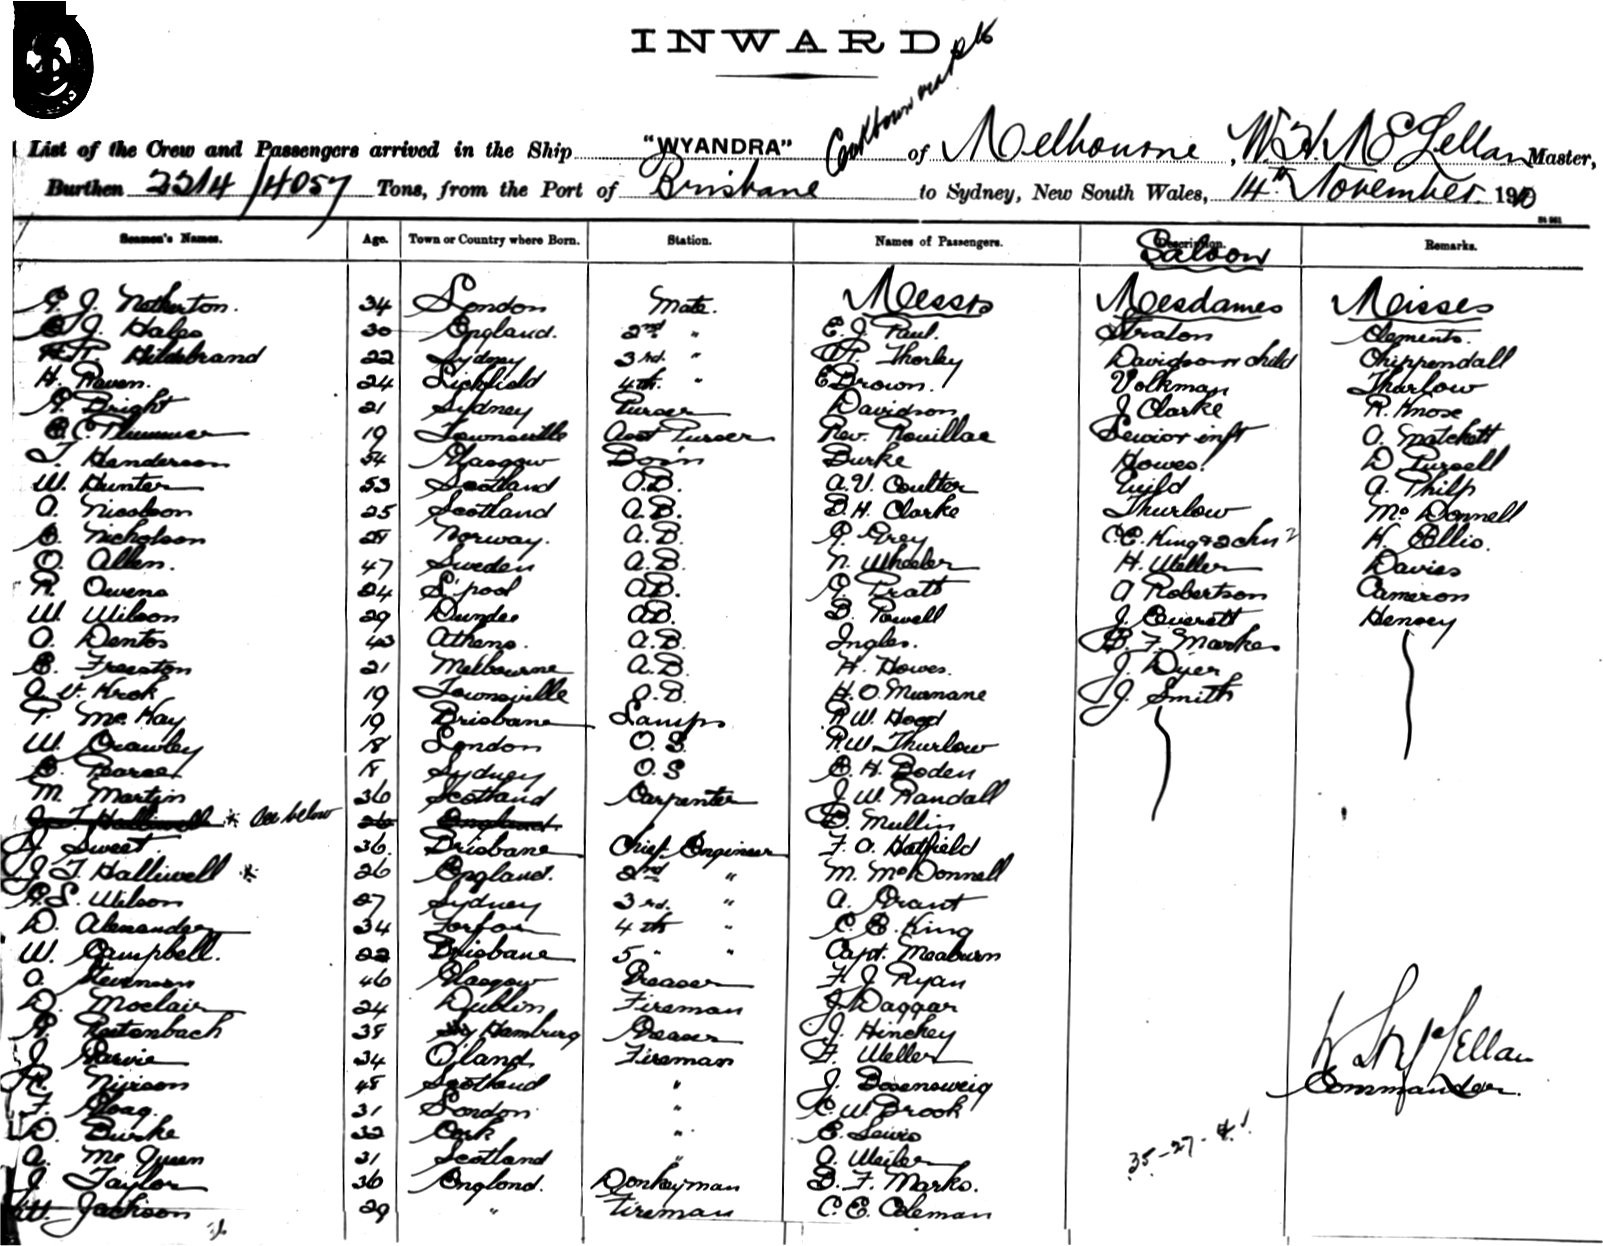 INWARD
List of the Crew and Passengers arrived in the Ship "WYANDRA" of Melbourne, W. H. McLellan Master,
Burthen 2214/4057 Tons, from the Port of Brisbane to Sydney, New South Wales, 14th November 1910
Seamen's Names. Age. Town or Country where Born. Station. Names of Passengers. Description. Remarks.
Saloon
Messrs Mesdames Misses
G. J. Netherton. 34 London Mate.
J. Hales 30 England. 2nd " E. J. Paul. Straton Clements.
Hildebrand 22 Sydney 3rd. " Thorley Davidson & child Chippendall
H. Raven. 24 Lichfield 4th. " E Brown. Volkman Thurlow
Bright 21 Sydney Purser Davidson J. Clarke R. Knose
C. Plummer 19 Townsville Asst Purser Rev. Rouillac Senior inft O. Matchett
T. Henderson 54 Glasgow Bos'n Burke Howes. D Pursell
W. Hunter 53 Scotland A.B. A. V. Coulter Guild A. Philp
A. Nicolson 25 Scotland A.B. B. H. Clarke Thurlow McDonnell
Nicholson Norway. A.B. Grey C. E. King & 2 chn H. Ellis.
O. Allen. 47 Sweden A.B. N. Wheeler H. Weller Davies
R. Owens 24 L'pool A.B. Pratt A Robertson Cameron
W. Wilson 29 Dundee A.B. B. Powell J. Everett Hensey
A. Dentos 43 Athens. A.B. Ingles. B. F. Marks
E. Freeston 21 Melbourne A.B. H. Howes. J. Dyer
A. V. Krok 19 Townsville A.B. H. O. Murnane J. Smith
T. McKay 19 Brisbane Lamps R. W. Hood
W. Crawley 18 London O. S. R. W. Thurlow
E. Pearce 18 Sydney O. S E. H. Boden
M. Martin 36 Scotland Carpenter J. W. Randall
J. T. Halliwell * See below 26 England. B. Mullin
J. Sweet. 36. Brisbane Chief Engineer F. A. Hatfield
J T. Halliwell * 26 England. 2nd " M. McDonnell
S. Wilson 27 Sydney 3rd. " A. Grant
D. Alexander 34 Forfar 4th " C. E. King
W. Campbell. 22 Brisbane 5 " " Capt. Meaburn
A. Stevenson 46 Glasgow Greaser F. J. Ryan
D. Moclair 24 Dublin Fireman J. Daggar
Reitenbach 38 Hamburg Greaser J. Hinchey
J. Garvie 34 O'land Fireman F. Weller
Nivison 48 Scotland " J. Bosensweig
F. Hoag. 31 London " C. W. Brook
D. Burke 32 Cork " E. Lewis
A. McQueen 31 Scotland " A. Weiler
J. Taylor 36 England. Donkeyman B. F. Marks.
W. Jackson 29 " Fireman C. E. Coleman
W H McLellan
Commander.
35-27-4